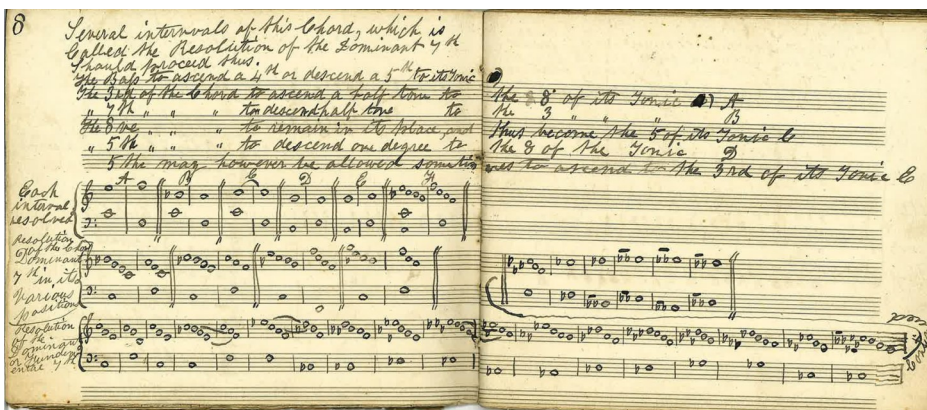 8
Several intervals of this Chord, which is
Called the Resolution of the Dominant 7th
Should proceed thus.
The Bass to ascend a 4th or descend a 5th to its Tonic
The 3rd of the Chord to ascend a half tone to the 8 of its Tonic A
" 7th " " " to descend half tone to the 3 " " " B
The 8ve " " " to remain in its place, and thus become the 5 of its Tonic C
" 5th " " " to descend one degree to the 8 of the Tonic D
5 the may however be allowed sometimes to ascend to the 3rd of its Tonic E
A B C D E
Each
interval
resolved
Resolution
of the Chord
Dominant
7th in its
Various
positions
Resolution
of the
Dominant
or
7th